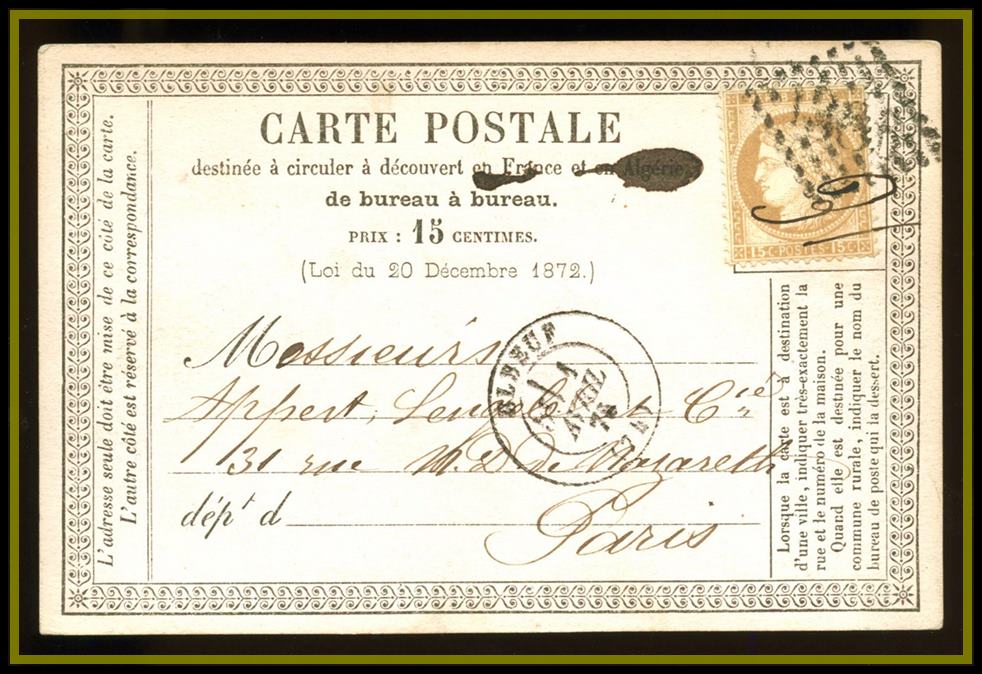 CARTE POSTALE
destinée à circuler à découvert en France et en Algérie
de bureau à bureau.
PRIX : 15 CENTIMES.
(Loi du 20 Décembre 1872.)
15 C. POSTES 15 C.
L'adresse seule doit être mise de ce côté de la carte.
L'autre côté est réservé à la correspondance.
Messieurs
Appert, et Cie
31 rue N. D. de Nazareth
dépt d
Paris
ELBEUF
1
AVRIL
(74)
Lorsque la carte est à destination
d'une ville, indiquer très-exactement la
rue et le numéro de la maison.
Quand elle est destinée pour une
commune rurale, indiquer le nom du
bureau de poste qui la dessert.